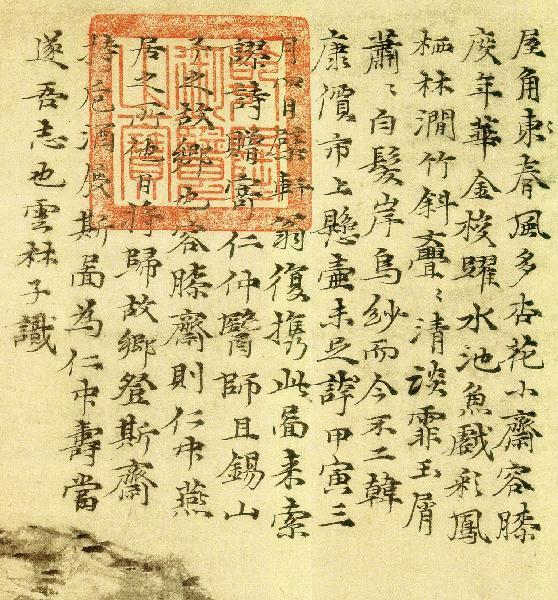 屋角東春風多杏花小齋容膝
度年華金梭躍水池魚戲彩鳳
栖林澗竹斜亹〻清談霏玉屑
蕭〻白髮岸烏紗而今不二韓
康價市上懸壺未足誇甲寅三
月四日檗軒翁復携此啚来索
謬詩贈寄仁仲醫師且錫山
予之故鄉也容膝齋則仁中燕
居之所他日將歸故鄉登斯齋
持巵酒展斯啚為仁中壽當
遂吾志也雲林子識